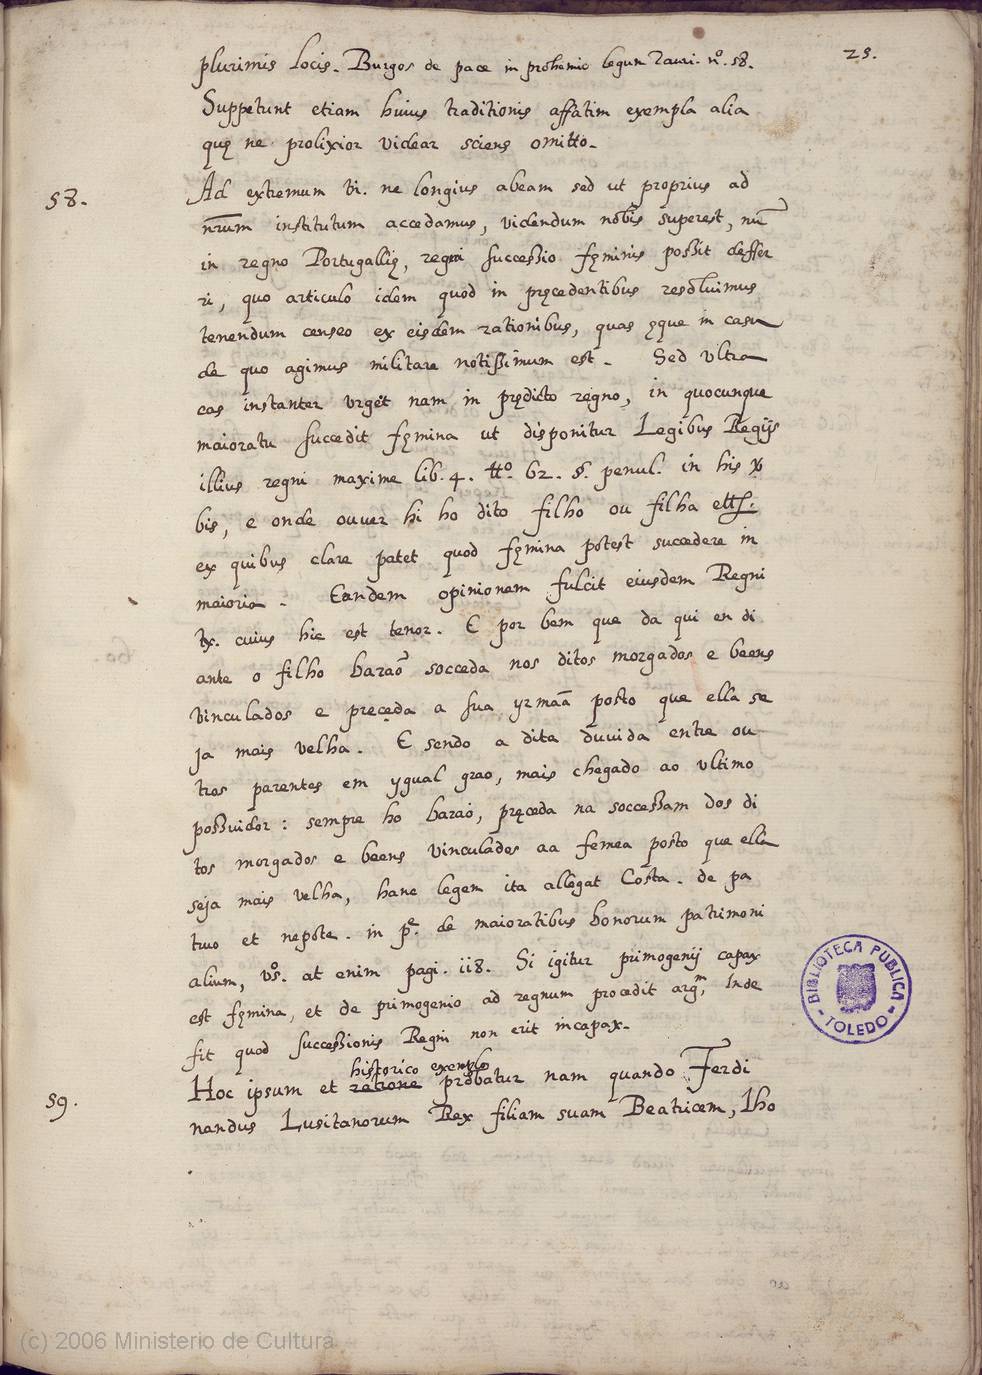 25.
plurimis locis. Burgos de pace in prohemio legun Tauri. nº. 58.
Suppetunt etiam huius traditionis affatim exempla alia
quę ne prolixior videar sciens omitto.
58.
Ad extremum vt. ne longius abeam sed ut proprius ad
nr̃um institutum accedamus, videndum nobis superest, nũ
in regno Portugallię, regni successio fęminis possit deffer
ri, quo articulo idem quod in pręcedentibus resoluimus
tenendum censeo ex eisdem rationibus, quas ęque in casu
de quo agimus militare notissimum est. Sed vltra
eas instanter vrget nam in prędicto regno, in quocunque
maioratu succedit fęmina ut disponitur Legibus Regijs
illius regni maxime lib. 4. ttº. 62. §. penul. in his v̉
bis, e onde ouuer hi ho dito filho ou filha
ex quibus clare patet quod fęmina potest succedere in
maioria. Eandem opinionem fulcit eiusdem Regni
lex. cuius hic est tenor. E por bem que da qui en di
ante o filho baraõ socceda nos ditos morgados e beens
vinculados e preceda a sua yrmaã posto que ella se
ja mais velha. E sendo a dita duuida entre ou
tros parentes em ygual grao, mais chegado ao vltimo
possuidor: sempre ho barao, pręceda na soccessam dos di
tos morgados e beens vinculados aa femea posto que ella
seja mais velha, hanc legem ita allegat Costa. de pa
truo et nepote. in pᵉ. de maioratibus bonorum patrimoni
alium, vº. at enim pagi. 118. Si igitur primogenij capax
est fęmina, et de primogenio ad regnum procedit argᵐ, Inde
fit quod successionis Regni non erit incapax.
59.
historico exemplo
Hoc ipsum et ratione probatur nam quando Ferdi
nandus Lusitanorum Rex filiam suam Beatricem, Iho
BIBLIOTECA PUBLICA
- TOLEDO -
(c) 2006 Ministerio de Cultura